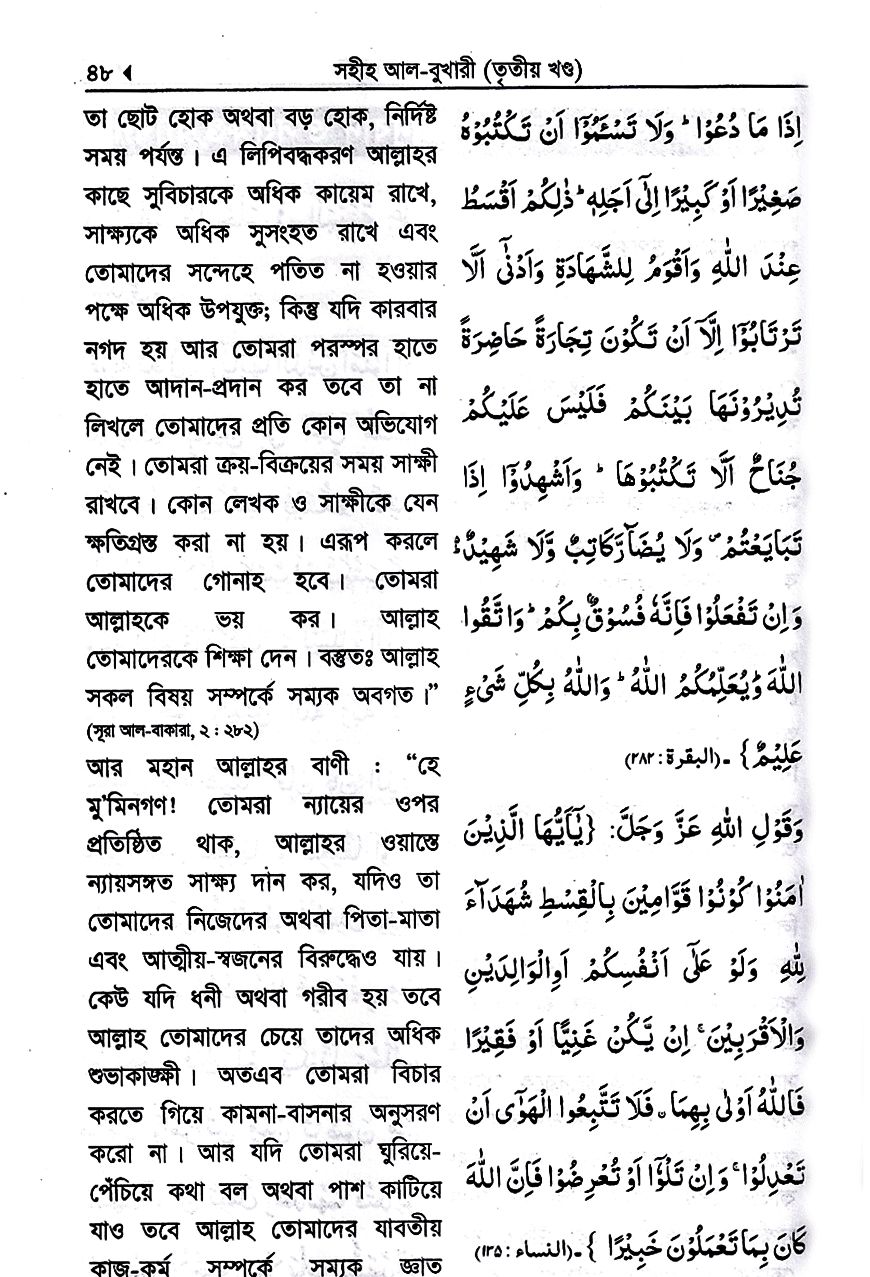 ৪৮ ◀ সহীহ আল-বুখারী (তৃতীয় খণ্ড)
তা ছোট হোক অথবা বড় হোক, নির্দিষ্ট
সময় পর্যন্ত। এ লিপিবদ্ধকরণ আল্লাহর
কাছে সুবিচারকে অধিক কায়েম রাখে,
সাক্ষ্যকে অধিক সুসংহত রাখে এবং
তোমাদের সন্দেহে পতিত না হওয়ার
পক্ষে অধিক উপযুক্ত; কিন্তু যদি কারবার
নগদ হয় আর তোমরা পরস্পর হাতে
হাতে আদান-প্রদান কর তবে তা না
লিখলে তোমাদের প্রতি কোন অভিযোগ
নেই। তোমরা ক্রয়-বিক্রয়ের সময় সাক্ষী
রাখবে। কোন লেখক ও সাক্ষীকে যেন
ক্ষতিগ্রস্ত করা না হয়। এরূপ করলে
তোমাদের গোনাহ হবে। তোমরা
আল্লাহকে ভয় কর। আল্লাহ
তোমাদেরকে শিক্ষা দেন। বস্তুতঃ আল্লাহ
সকল বিষয় সম্পর্কে সম্যক অবগত।”
(সূরা আল-বাকারা, ২ : ২৮২)
আর মহান আল্লাহর বাণী : “হে
মু'মিনগণ! তোমরা ন্যায়ের ওপর
প্রতিষ্ঠিত থাক, আল্লাহর ওয়াস্তে
ন্যায়সঙ্গত সাক্ষ্য দান কর, যদিও তা
তোমাদের নিজেদের অথবা পিতা-মাতা
এবং আত্মীয়-স্বজনের বিরুদ্ধেও যায়।
কেউ যদি ধনী অথবা গরীব হয় তবে
আল্লাহ তোমাদের চেয়ে তাদের অধিক
শুভাকাঙ্ক্ষী। অতএব তোমরা বিচার
করতে গিয়ে কামনা-বাসনার অনুসরণ
করো না। আর যদি তোমরা ঘুরিয়ে-
পেঁচিয়ে কথা বল অথবা পাশ কাটিয়ে
যাও তবে আল্লাহ তোমাদের যাবতীয়
কাজ-কর্ম সম্পর্কে সম্যক জ্ঞাত
اِذَا مَا دُعُوْا ؕ وَلَا تَسْـَٔمُوْٓا اَنْ تَكْتُبُوْهُ
صَغِيْرًا اَوْ كَبِيْرًا اِلٰٓى اَجَلِهٖ ؕ ذٰلِكُمْ اَقْسَطُ
عِنْدَ اللّٰهِ وَاَقْوَمُ لِلشَّهَادَةِ وَاَدْنٰٓى اَلَّا
تَرْتَابُوْٓا اِلَّآ اَنْ تَكُوْنَ تِجَارَةً حَاضِرَةً
تُدِيْرُوْنَهَا بَيْنَكُمْ فَلَيْسَ عَلَيْكُمْ
جُنَاحٌ اَلَّا تَكْتُبُوْهَا ؕ وَاَشْهِدُوْٓا اِذَا
تَبَايَعْتُمْ ۪ وَلَا يُضَآرَّ كَاتِبٌ وَّلَا شَهِيْدٌ ؕ
وَاِنْ تَفْعَلُوْا فَاِنَّهٗ فُسُوْقٌۢ بِكُمْ ؕ وَاتَّقُوا
اللّٰهَ وَيُعَلِّمُكُمُ اللّٰهُ ؕ وَاللّٰهُ بِكُلِّ شَىْءٍ
عَلِيْمٌ} ـ (البقرة : ۲۸۲)
وَقَوْلِ اللّٰهِ عَزَّ وَجَلَّ: {يٰٓاَيُّهَا الَّذِيْنَ
اٰمَنُوْا كُوْنُوْا قَوَّامِيْنَ بِالْقِسْطِ شُهَدَآءَ
لِلّٰهِ وَلَوْ عَلٰٓى اَنْفُسِكُمْ اَوِ الْوَالِدَيْنِ
وَالْاَقْرَبِيْنَ ۚ اِنْ يَّكُنْ غَنِيًّا اَوْ فَقِيْرًا
فَاللّٰهُ اَوْلٰى بِهِمَا ۫ فَلَا تَتَّبِعُوا الْهَوٰٓى اَنْ
تَعْدِلُوْا ۚ وَاِنْ تَلْوٗٓا اَوْ تُعْرِضُوْا فَاِنَّ اللّٰهَ
كَانَ بِمَا تَعْمَلُوْنَ خَبِيْرًا } ـ (النساء : ۱۳۵)